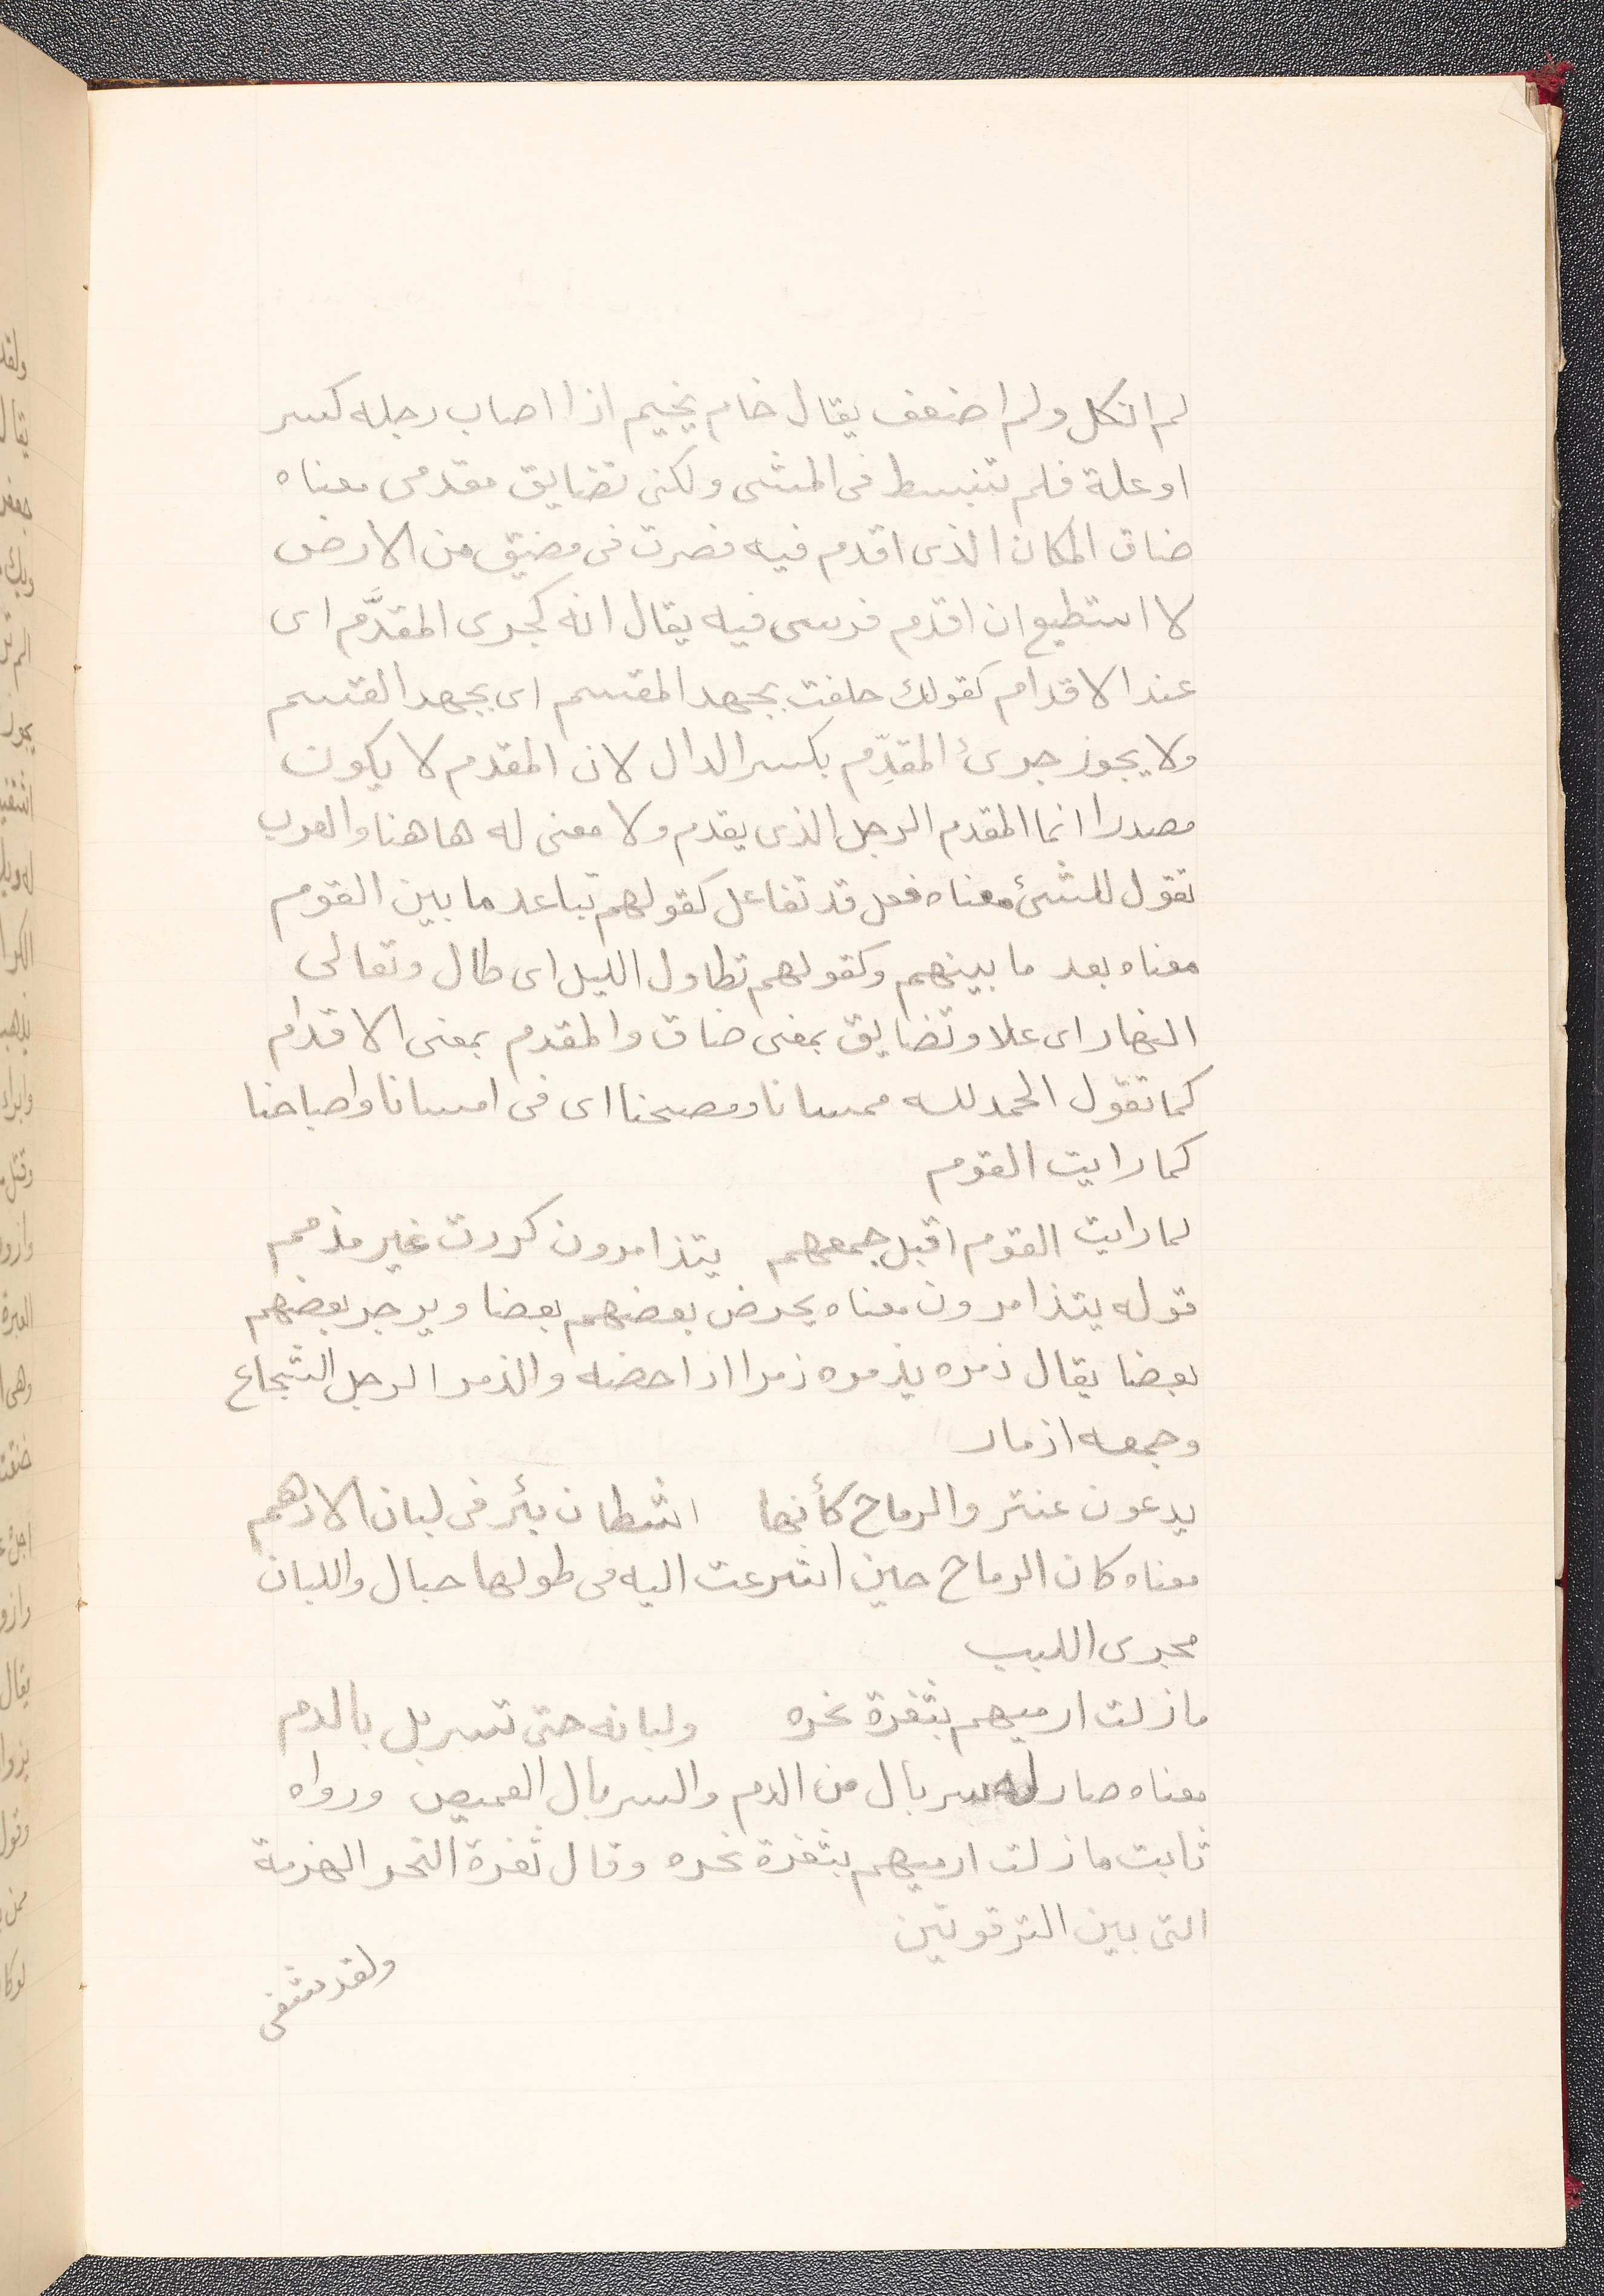 لم انكل ولم اضعف يقال خام يخيم اذا اصاب رجله كسر
او علة فلم تنبسط فى المشى ولكنى تضايق مقدمى معناه
ضاق المكان الذى اقدم فيه فصرت فى مضيق من الارض
لا استطيع ان اقدم فرسى فيه يقال انه لجرى المقدَّم اى
عند الاقدام كقولك حلفت بجهد المقسم اى بجهد القسم
ولا يجوز جرىٔ المقدِّم بكسر الدال لان المقدم لا يكون
مصدرا انما المقدم الرجل الذى يقدم ولا معنى له هاهنا والعرب
تقول للشىٔ معناه فعل قد تفاعل كقولهم تباعد ما بين القوم
معناه بعد ما بينهم وكقولهم تطاول الليل اى طال وتعالى
النهار اى علا وتضايق بمعنى ضاق والمقدم بمعنى الاقدام
كما تقول الحمد لله ممسانا ومصبحنا اى فى امسانا واصباحنا
كما رايت القوم
لما رايت القوم اقبل جمعهم يتذامرون كررت غير مذمم
قوله يتذامرون معناه يحرض بعضهم بعضا ويرجر بعضهم
بعضا يقال ذمره يذمره ذمرا اذا حضه والذمر الرجل الشجاع
وجمعه اذمار
يدعون عنتر والرماح كأنها اشطان بئر فى لبان الادهم
معناه كان الرماح حين اشرعت اليه فى طولها حبال واللبان
مجرى اللبب
ما زلت ارميهم بثغرة نحره ولبانه حتى تسربل بالدم
معناه صار له سربال من الدم والسربال القميص ورواه
ثابت ما زلت ارميهم بثغرة نحره وقال ثغرة النحر الهزمة
التى بين الترقوتين
ولقد شفى